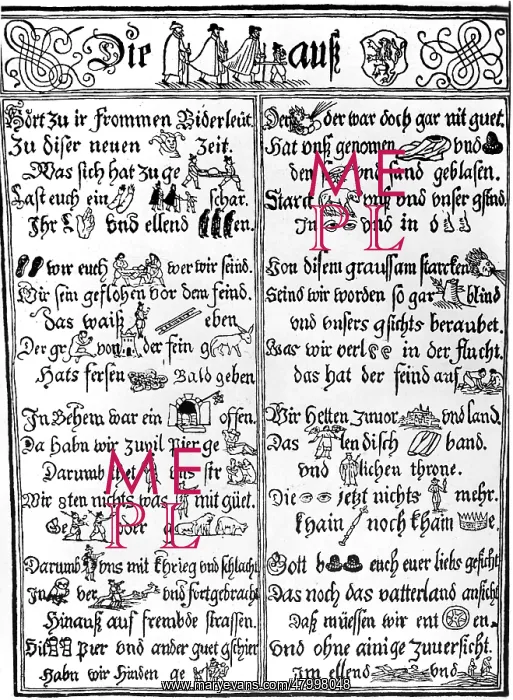 Die auß
Hört zu ir frommen Biderleüt.
Zu diser neuen Zeit.
Was sich hat zu ge
Last euch ein schar.
Ihr vnd ellend en.
wir euch wer wir seind.
Wir sein geflohen vor dem feind.
Das waiß eben
Der gr von der sein g
Hats fersen Bald geben
In Behem war ein offen.
Da habn wir zuvil Pier ge
Darumb str
Wir nichts was mit güet.
Ge oder
Darumb vns mit khrieg vnd schlacht
In ver vnd fortgebracht
Hinauß auf frembde strassen.
Pier vnd ander guet gschier
Habn wir hinden ge
Der der war doch gar nit guet.
Hat vnß genomen vnd
den vnd sand geblasen.
Starck vnß vnd vnser gsind.
In vnd in o
Von disem graussam starcken
Seind wir worden so gar blind
vnd vnsers gsichts beraubet.
Was wir verl in der flucht.
das hat der feind auf
Wir hetten zuuor vnd land.
Das lendisch band.
vnd lichen throne.
Die jetzt nichts mehr.
khain noch kham e.
Gott b euch euer liebs gesicht
Das noch das vatterland ansicht
Daß müessen wir ent en.
vnd ohne ainige zuuersicht.
im ellend vnd
ME
PL
ME
PL
www.maryevans.com/47998048